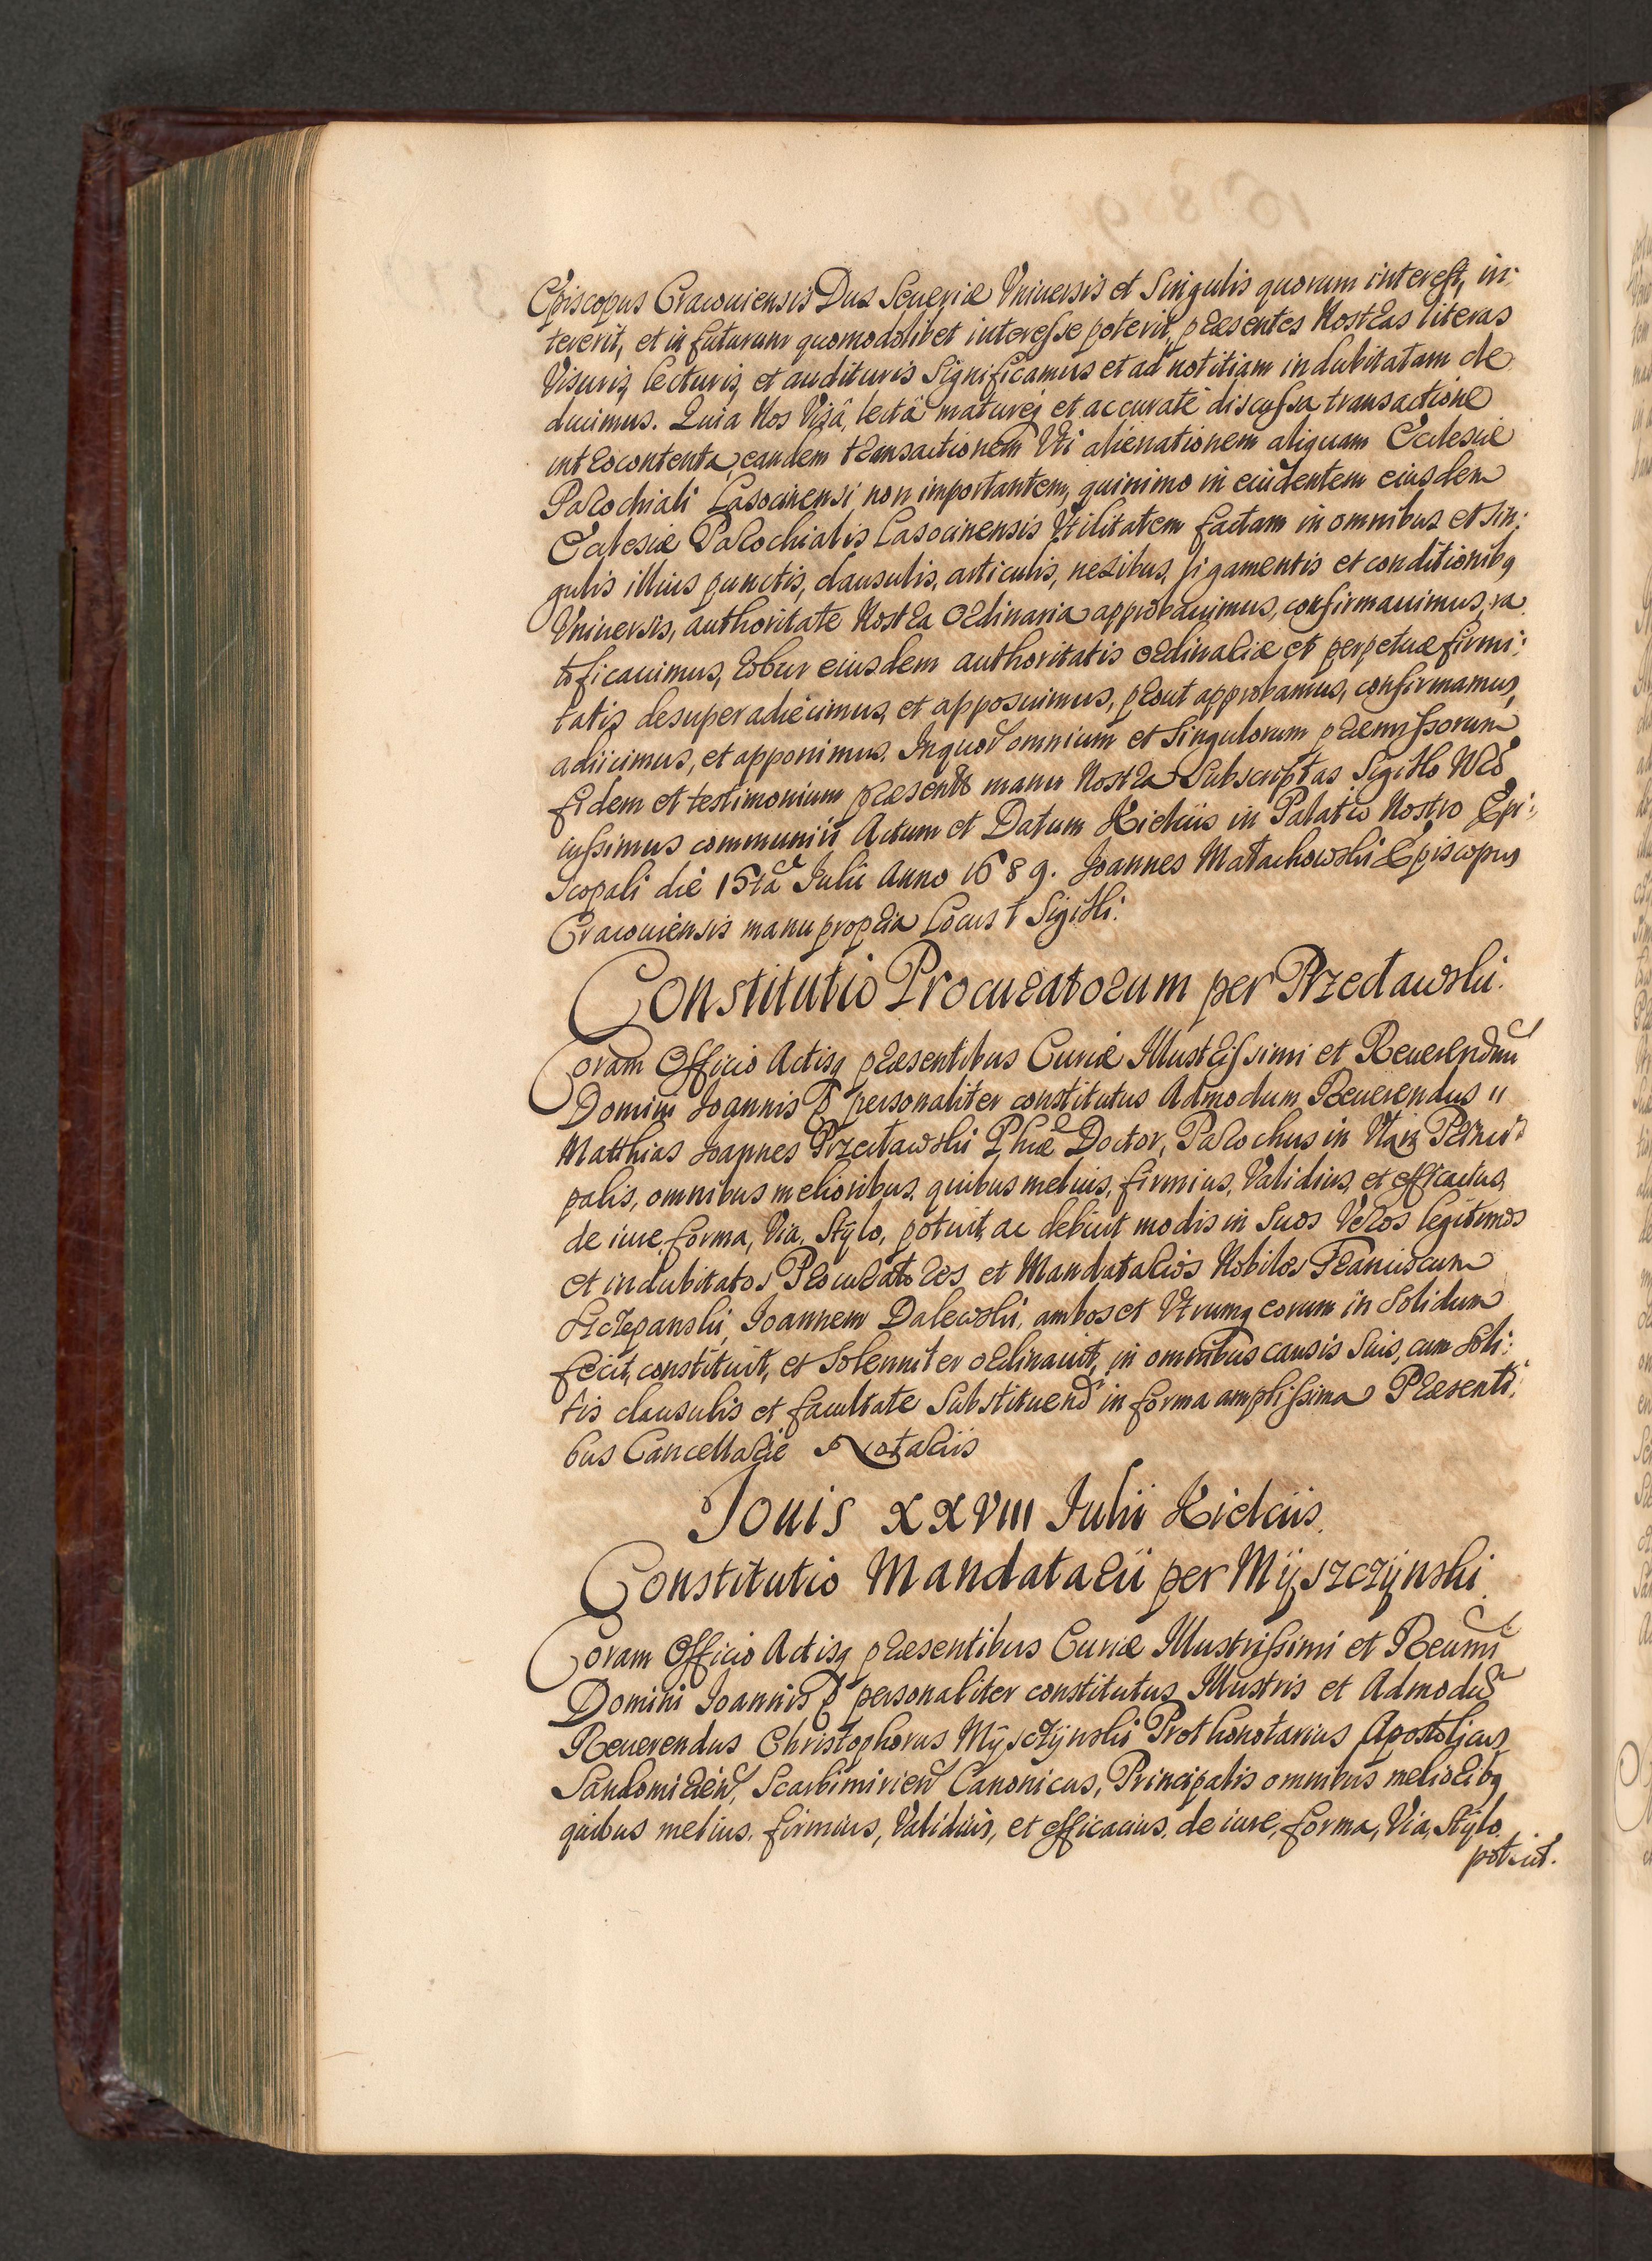 Episcopus Cracouiensis Dux Seueriæ Vniuersis et Singulis quorum interest, in:
tererit, et in futurum quomodolibet interesse poterit, præsentes Nostras literas
Visuris, lecturis, et audituris Significamus et ad notitiam indubitatam de
ducimus. Quia Nos Visâ, lectâ matureq et accuratè discussa transactione
introcontenta, eandem transactionem Vti alienationem aliquam Ecclesiæ
Parochiali Lasocinensi non importantem, quinimo in euidentem eiusdem
Ecclesiæ Parochialis Lasocinensis Vtilitatem factam in omnibus et sin:
gulis illius punctis, clausulis, articulis, nexibus, ligamentis et conditionibq
Vniuersis, authoritate Nostra Ordinaria approbauimus, confirmauimus, ra
tificauimus, robur eiusdem authoritatis ordinariæ et perpetuæ firmi:
tatis desuper adiecimus, et apposuimus, prout approbamus, confirmamus,
adiicimus, et apponimus. In quor omnium et Singulorum præmissorum
fidem et testimonium præsentes manu Nostra Subscriptas Sigillo Nro
iussimus communiri Actum et Datum Kielciis in Palatio Nostro Epi:
scopali die 15ta Iulii Anno 1689. Joannes Małachowski Episcopus
Cracouiensis manu propria Locus † Sigilli.
Constitutio Procuratorum per Przecławski.
Coram Officio Actisq præsentibus Curiæ Illustrissimi et Reuerendmi
Domini Joannis P personaliter constitutus Admodum Reuerendus "
Matthias Joannes Przecławski Phiæ Doctor, Parochus in
palis, omnibus melioribus, quibus melius, firmius, Validius, et efficacius,
de iure, forma, Via, Stylo, potuit, ac debuit modis in Suos Veros legitimos
et indubitatos Procuratores et Mandatarios Nobiles Franciscum
Szczepanski, Joannem Dalewski, ambos et Vtrumq eorum in Solidum
fecit, constituit, et Solenniter ordinauit, in omnibus causis Suis, cum Soli:
tis clausulis et facultate Substituend in forma amplissima Præsenti:
bus Cancellariæ Notariis
Jouis XXVIII Iulii Kielciis.
Constitutio Mandatarii per Myszczynski
Coram Officio Actisq præsentibus Curiæ Illustrissimi et Reumi
Domini Joannis P personaliter constitutus Illustris et Admodũ
Reuerendus Christophorus Mysczynski Prothonotarius Apostolicus,
Sandomirien, Scarbimirien Canonicus, Principalis omnibus melioribq
quibus melius, firmius, Validius, et efficacius, de iure, forma, Via, Stylo
potuit.